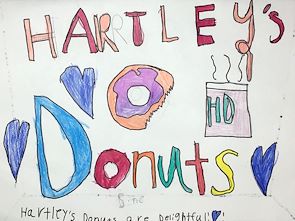 HARTLEY's
HD
Donuts
Hartley's Donuts are delightful!